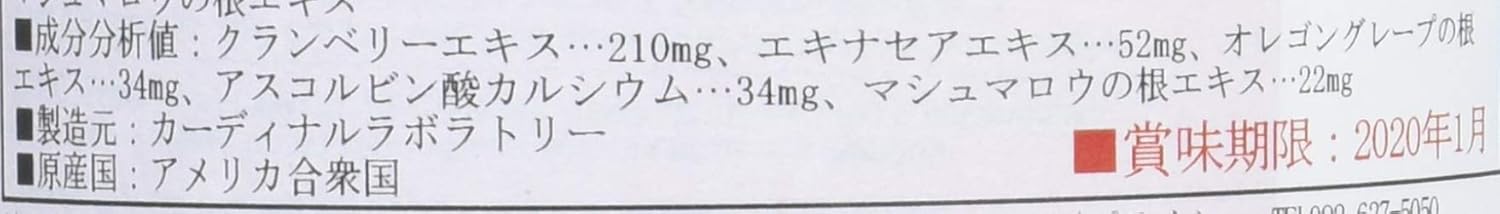 マシュマロウの根エキス
■成分分析値：クランベリーエキス…210mg、エキナセアエキス…52mg、オレゴングレープの根
エキス…34mg、アスコルビン酸カルシウム…34mg、マシュマロウの根エキス…22mg
■製造元：カーディナルラボラトリー
■原産国：アメリカ合衆国
■賞味期限：2020年1月